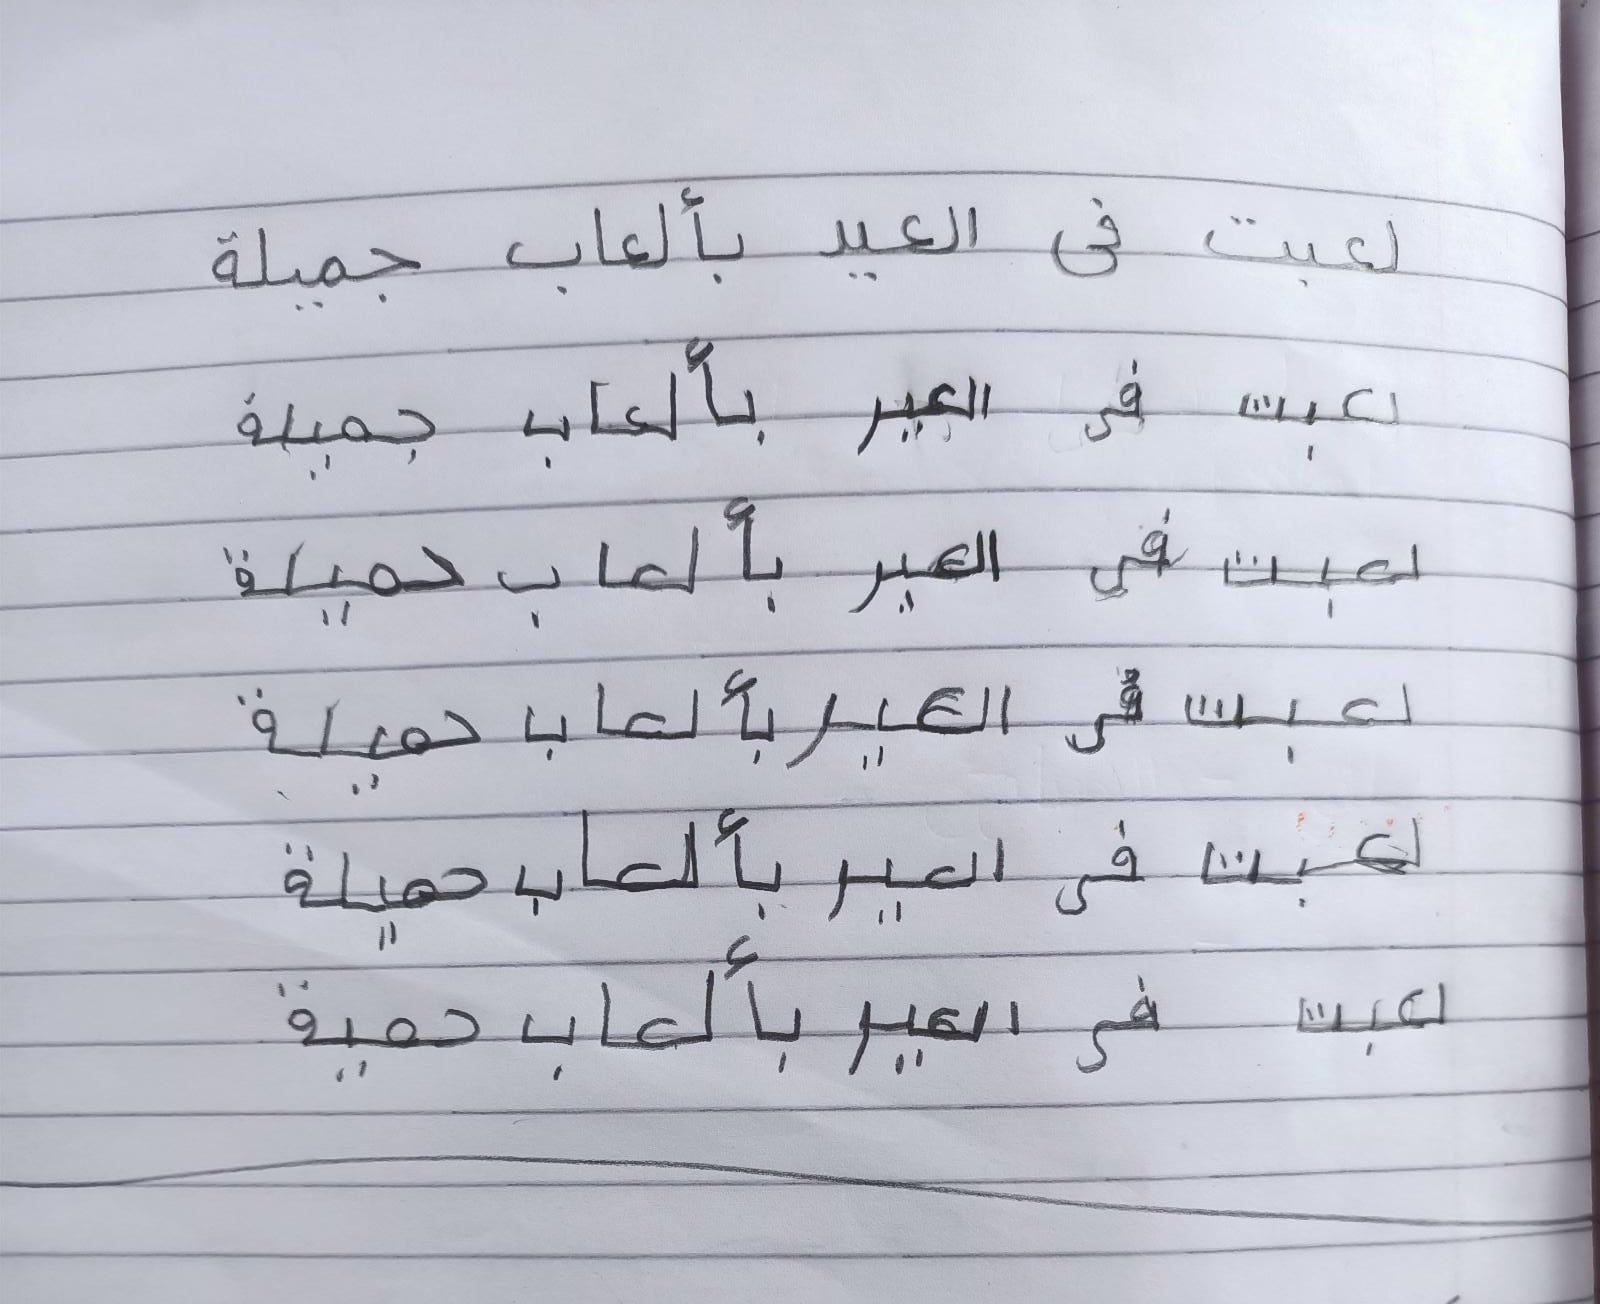 لعبت فى العيد بألعاب جميلة
لعبت فى العير بألعاب جميلة
لعبت فى العير بألعاب حميلة
لعبت فى العير بألعاب حميلة
لعبت فى العير بألعاب حميلة
لعبت فى العير بألعاب حمية